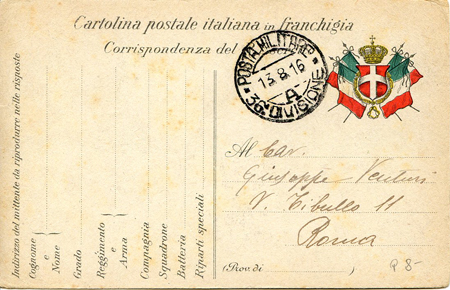 Cartolina postale italiana in franchigia
Corrispondenza del
POSTA MILITARE
13.8.16
A
36ª DIVISIONE
Indirizzo del mittente da riprodurre nelle risposte
Cognome
e
Nome
Grado
Reggimento
e
Arma
Compagnia
Squadrone
Batteria
Riparti speciali
Al Cav.
Giuseppe Venturi
V. Tibullo 11
Roma
(Prov. di
8-